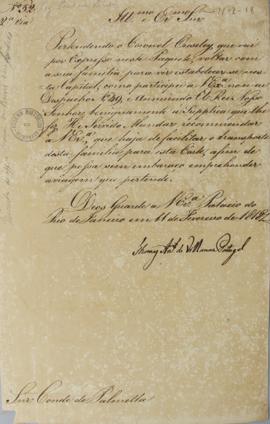 Nº 52
2ª Via
Illmo e Exmo Snr
Pertendendo o Coronel Crosley, que vai
por Expresso neste Paquete, voltar com
a sua familia, para vir estabelecer-se nes-
ta Capital, como participei a VEx.ª no meu
Despacho Nº 49, Annuindo El Rei Nosso
Senhor benignamente a Supplica que lhe
fez He Servido Mandar recommendar
a VEx.ª que haja de facilitar o transporte
desta familia para esta Corte, afim de
que possa sem embaraço emprehender
a viagem que pertende.
Deos Guarde a VEx.ª Palacio do
Rio de Janeiro em 11 de Fevereiro de 1818
Thomaz Antº de Villanova Portugal
Snr. Conde de Palmella